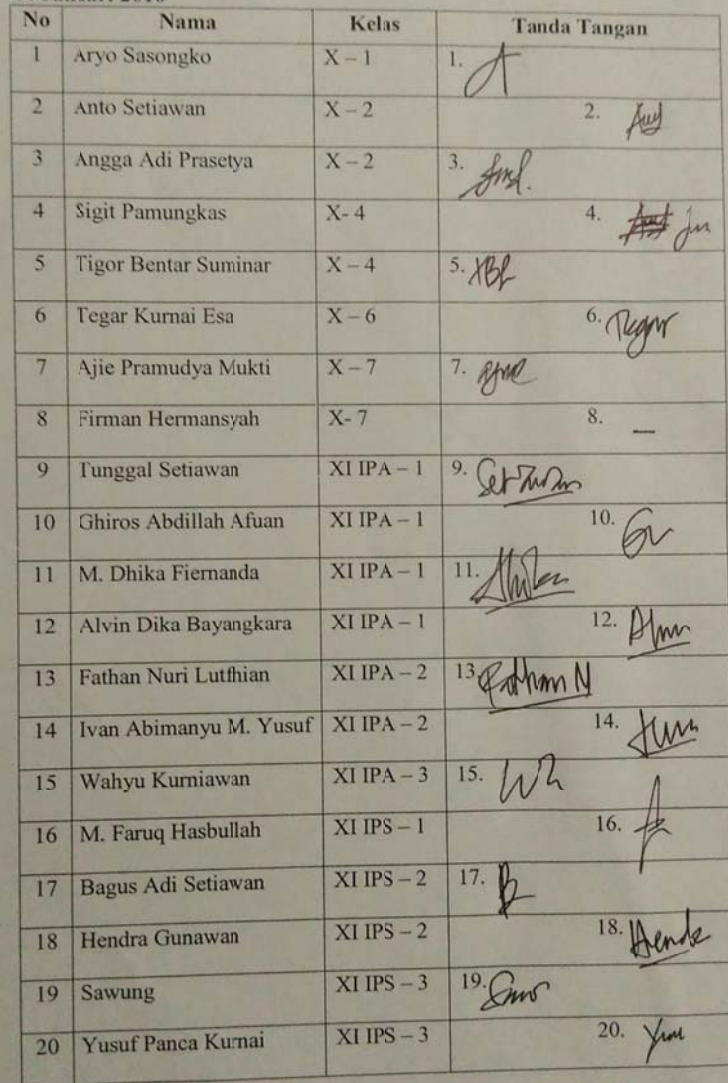 No Nama Kelas Tanda Tangan
1 Aryo Sasongko X – 1 1.
2 Anto Setiawan X – 2 2.
3 Angga Adi Prasetya X – 2 3.
4 Sigit Pamungkas X- 4 4.
5 Tigor Bentar Suminar X – 4 5.
6 Tegar Kurnai Esa X – 6 6. Tegar
7 Ajie Pramudya Mukti X – 7 7.
8 Firman Hermansyah X- 7 8. —
9 Tunggal Setiawan XI IPA – 1 9.
10 Ghiros Abdillah Afuan XI IPA – 1 10.
11 M. Dhika Fiernanda XI IPA – 1 11.
12 Alvin Dika Bayangkara XI IPA – 1 12.
13 Fathan Nuri Lutfhian XI IPA – 2 13. Fathan N
14 Ivan Abimanyu M. Yusuf XI IPA – 2 14.
15 Wahyu Kurniawan XI IPA – 3 15.
16 M. Faruq Hasbullah XI IPS – 1 16.
17 Bagus Adi Setiawan XI IPS – 2 17.
18 Hendra Gunawan XI IPS – 2 18.
19 Sawung XI IPS – 3 19.
20 Yusuf Panca Kurnai XI IPS – 3 20.